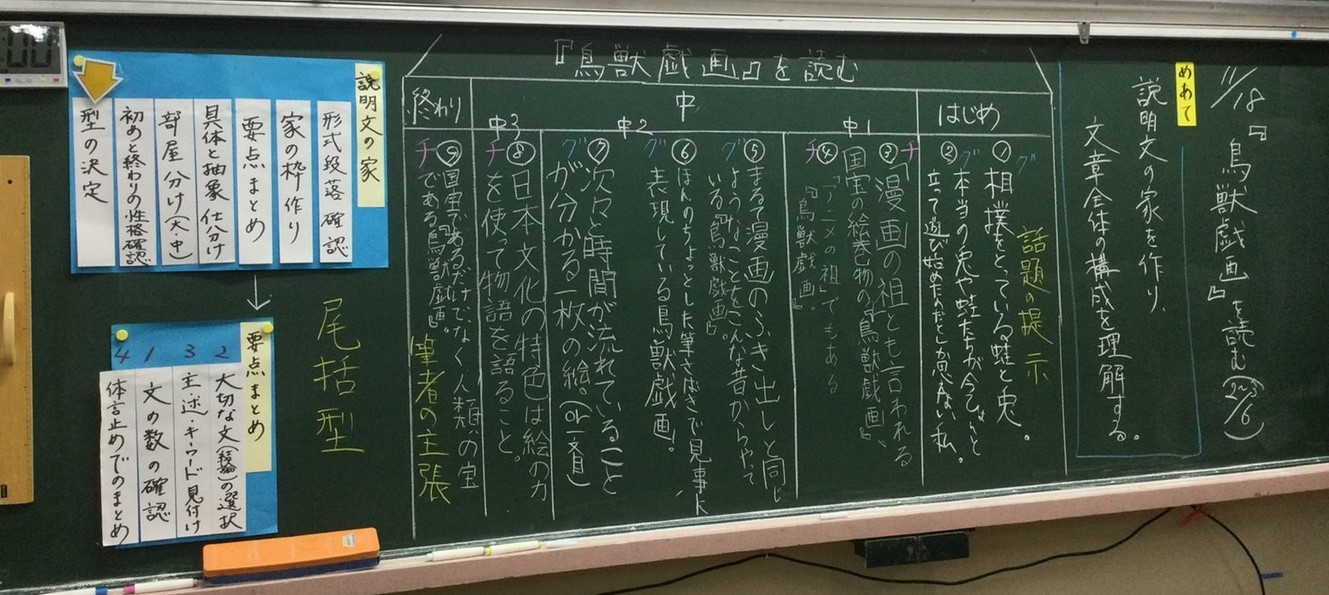 11/18『鳥獣戯画』を読む(2~3/6)
めあて
説明文の家を作り、
文章全体の構成を理解する。
『鳥獣戯画』を読む
はじめ
中
終わり
中1
中2
中3
話題の提示
グ
①相撲をとっている蛙と兎。
グ
②本当の兎や蛙たちが今ひょいと
立って遊び始めたのだとしか思えない私。
チ
③「漫画の祖」とも言われる
国宝の絵巻物の『鳥獣戯画』。
チ
④「アニメの祖」でもある
『鳥獣戯画』。
グ
⑤まるで漫画のふき出しと同じ
ようなことをこんな昔からやって
いる『鳥獣戯画』。
グ
⑥ほんのちょっとした筆さばきで見事に
表現している鳥獣戯画。
グ
⑦次々と時間が流れていること
が分かる一枚の絵。(or一文目)
チ
⑧日本文化の特色は絵の力
を使って物語を語ること。
チ
⑨国宝であるだけでなく人類の宝
である『鳥獣戯画』。
筆者の主張
尾括型
説明文の家
形式段落確認
家の枠作り
要点まとめ
具体と抽象仕分け
部屋分け(大中)
初めと終わりの性格確認
型の決定
要点まとめ
2 大切な文(結論)の選択
3 主・述・キーワード見付け
1 文の数の確認
4 体言止めでのまとめ